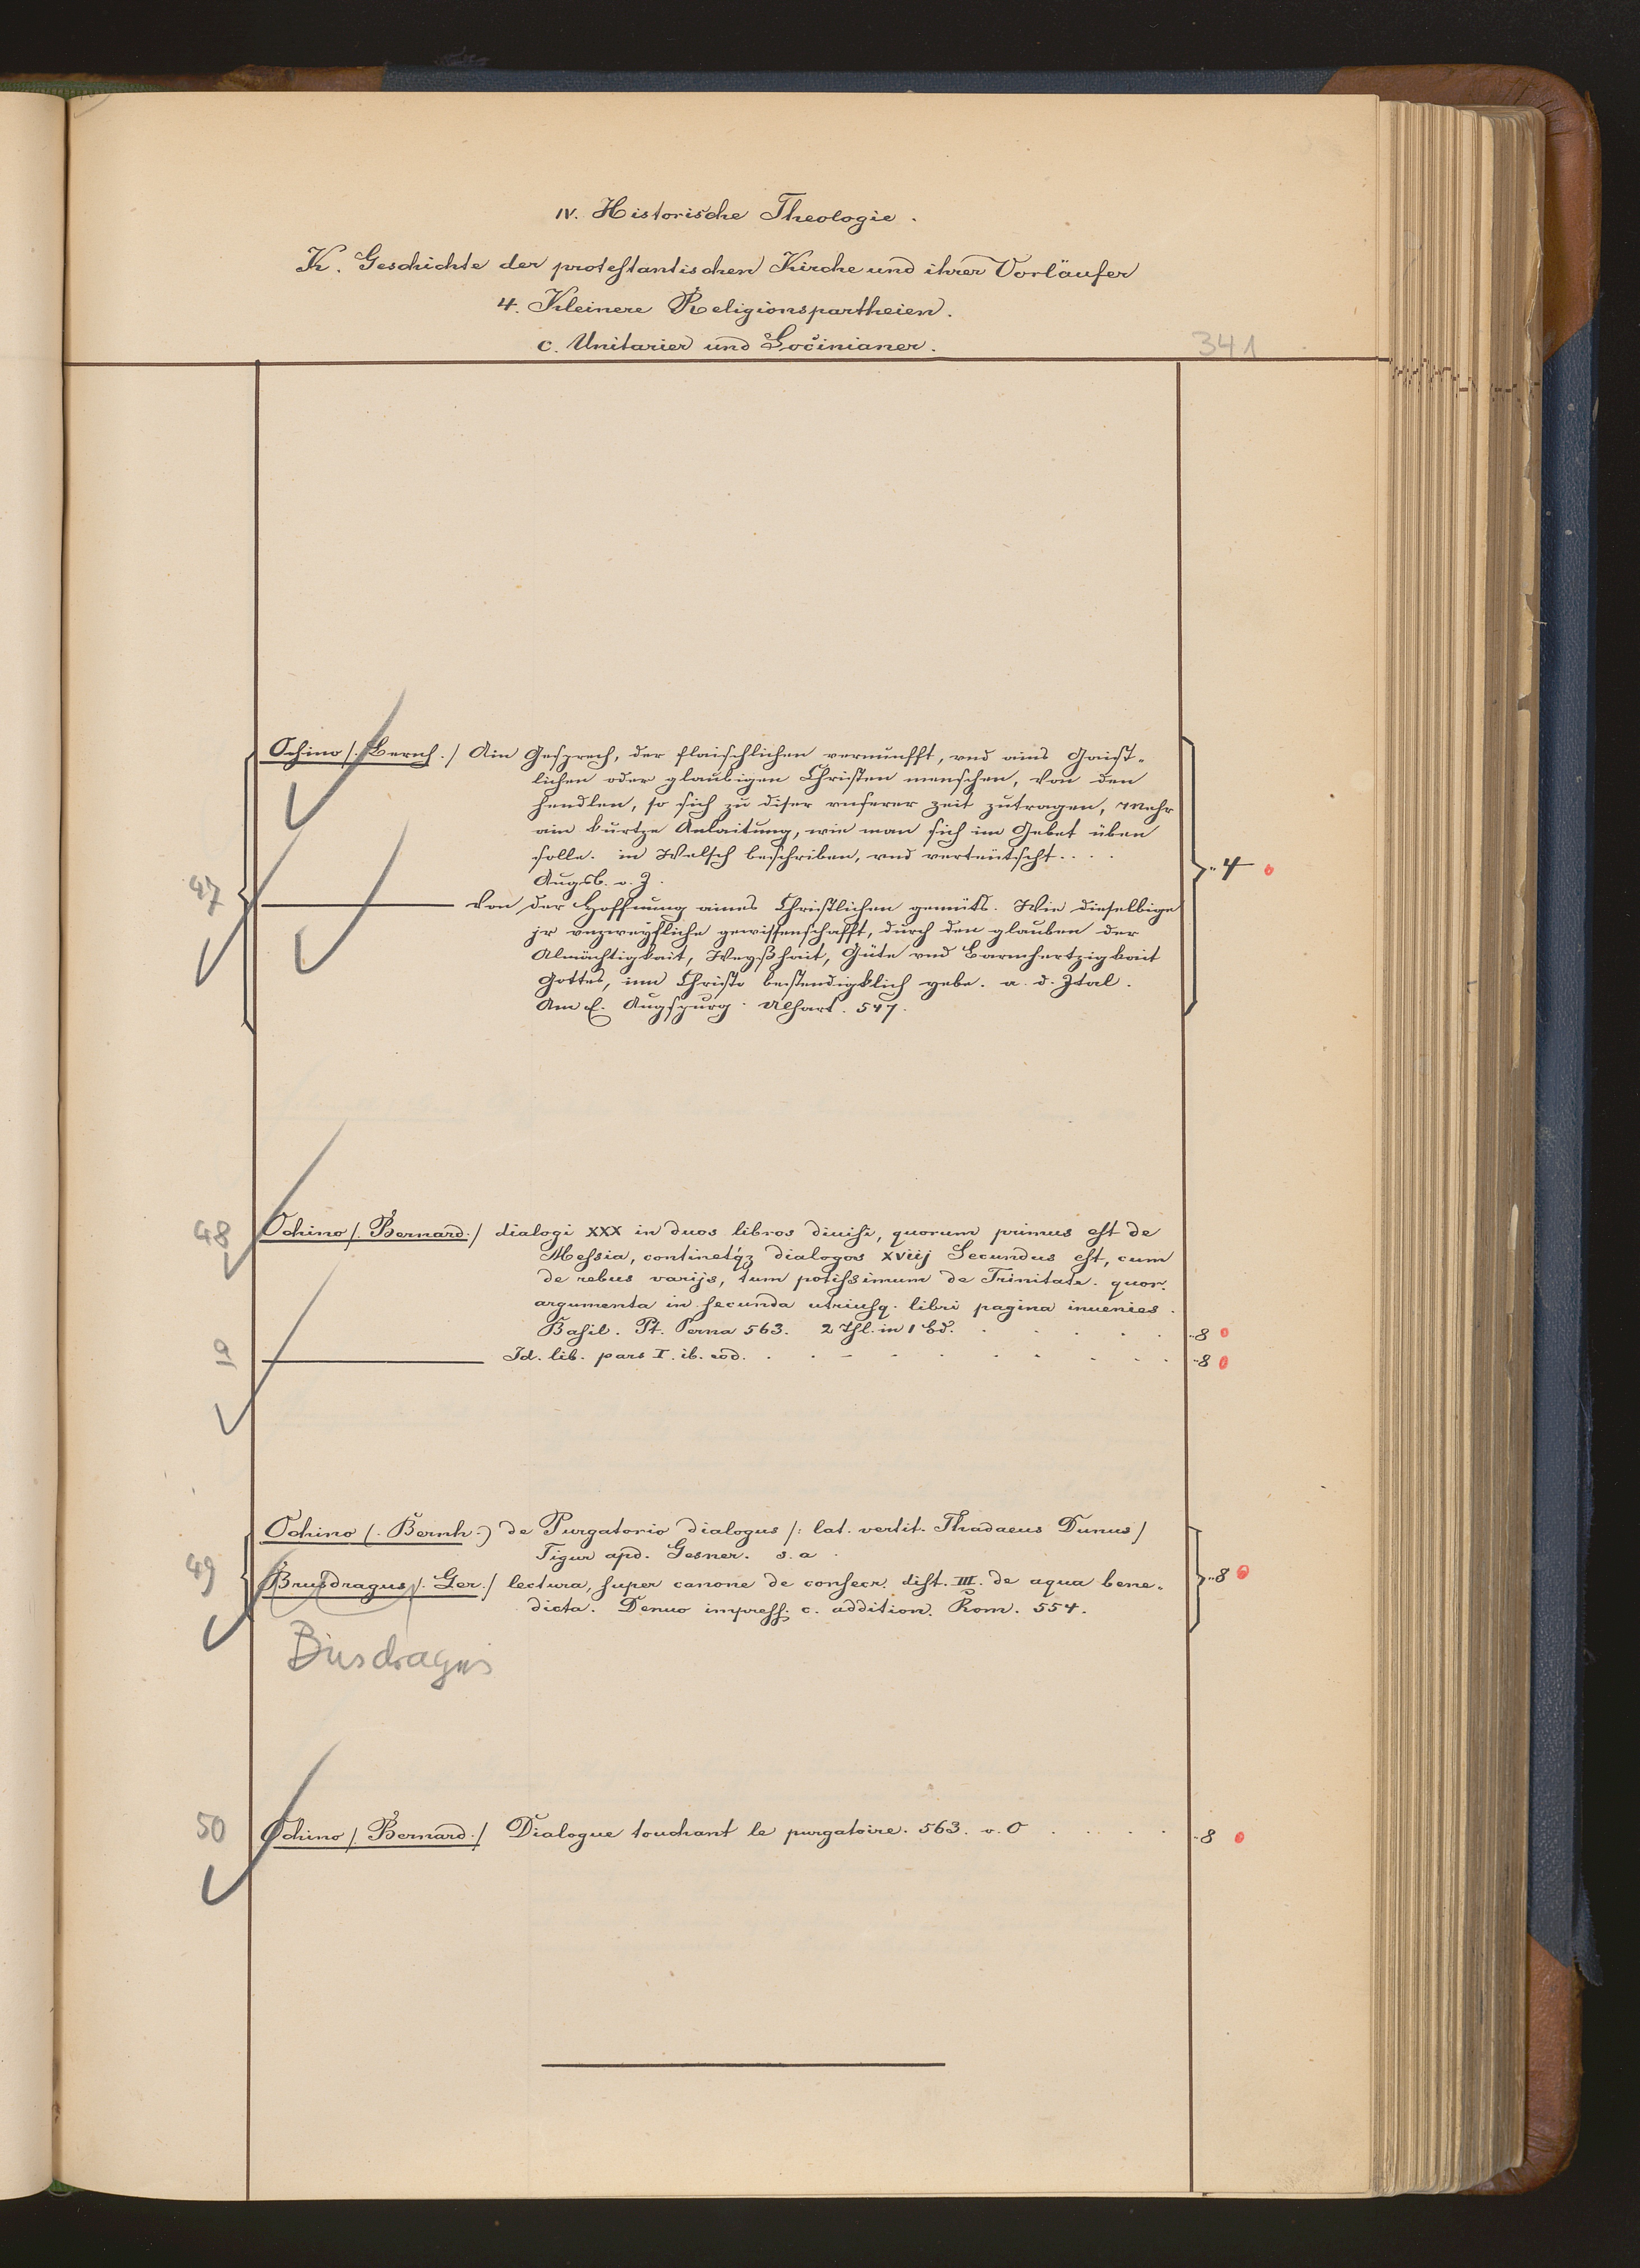 IV. Historische Theologie.
K. Geschichte der protestantischen Kirche und ihrer Vorläufer
4. Kleinere Religionspartheien.
c. Unitarier und Socinianer.
341
47
Ochino /. Bernh./ Ain Gesprech, der flaischlichen vernunfft, vnd ains Gaist-
lichen oder glaubigen Christen menschen, von den
hendlen, so sich zu diser vnserer zeit zutragen, Mehr
ain kurtze Anlaitung, wie man sich im Gebet üben
solle. in Welsch beschriben, vnd verteütscht....
Augsb. o. J. "4
von der Hoffnung aines Christlichen gemüts. Wie dieselbige
jr vnzweyfliche gewissenschafft, durch den glauben der
Almächtigkait, Weyßhait, Güte vnd Barmhertzigkait
Gottes, inn Christo bestendigklich gebe. a. d. Ital.
Am E. Augspurg. Ulhart. 547.
48
Ochino /. Bernard./ dialogi XXX in duos libros diuisi, quorum primus est de
Messia, continetqz dialogos xviij Secundus est, cum
de rebus varijs, tum potissimum de Trinitate. quor.
argumenta in secunda utriusq. libri pagina inuenies.
Basil. Pt. Perna 563. 2 Thl. in 1 Bd. . . . . . "8
a
Id. lib. pars I. ib. eod. . . . . . . . . "8
49
Ochino (. Bernh.) de Purgatorio dialogus /: lat. vertit. Thadaeus Dunus/
Tigur apd. Gesner. s. a.
Brusdragus /. Ger./ lectura, super canone de consecr. dist. III. de aqua bene- "8
dicta. Denuo impress. c. addition. Rom. 554.
Busdragus
50
Ochino /. Bernard./ Dialogue touchant le purgatoire. 563. o. O . . . . . "8